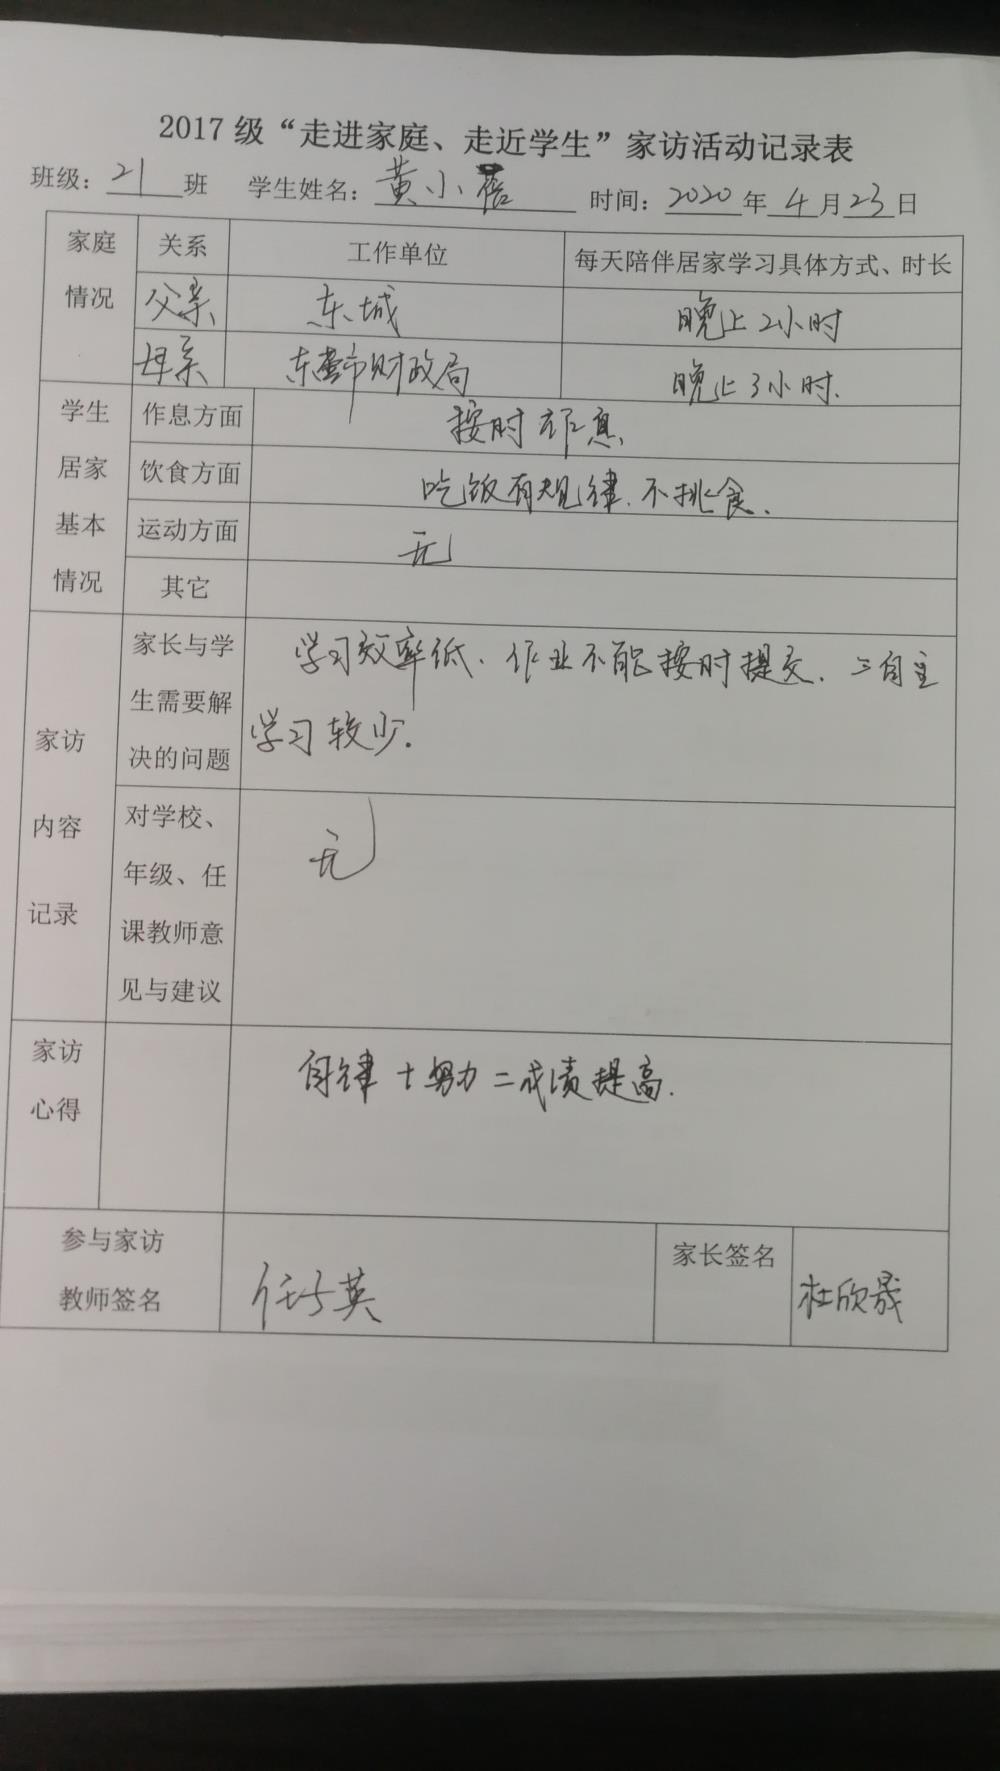 2017 级“走进家庭、走近学生”家访活动记录表
班级：21 班 学生姓名：黄小蓓 时间：2020 年 4 月 23 日
家庭情况 关系 工作单位 每天陪伴居家学习具体方式、时长
父亲 东城 晚上2小时
母亲 东营市财政局 晚上3小时.
学生居家基本情况
作息方面 按时作息.
饮食方面 吃饭有规律.不挑食.
运动方面 无
其它
家访内容记录
家长与学生需要解决的问题
学习效率低、作业不能按时提交. 自主
学习较少.
对学校、年级、任课教师意见与建议
无
家访心得
自律+努力=成绩提高.
参与家访教师签名 英
家长签名 杜欣晟